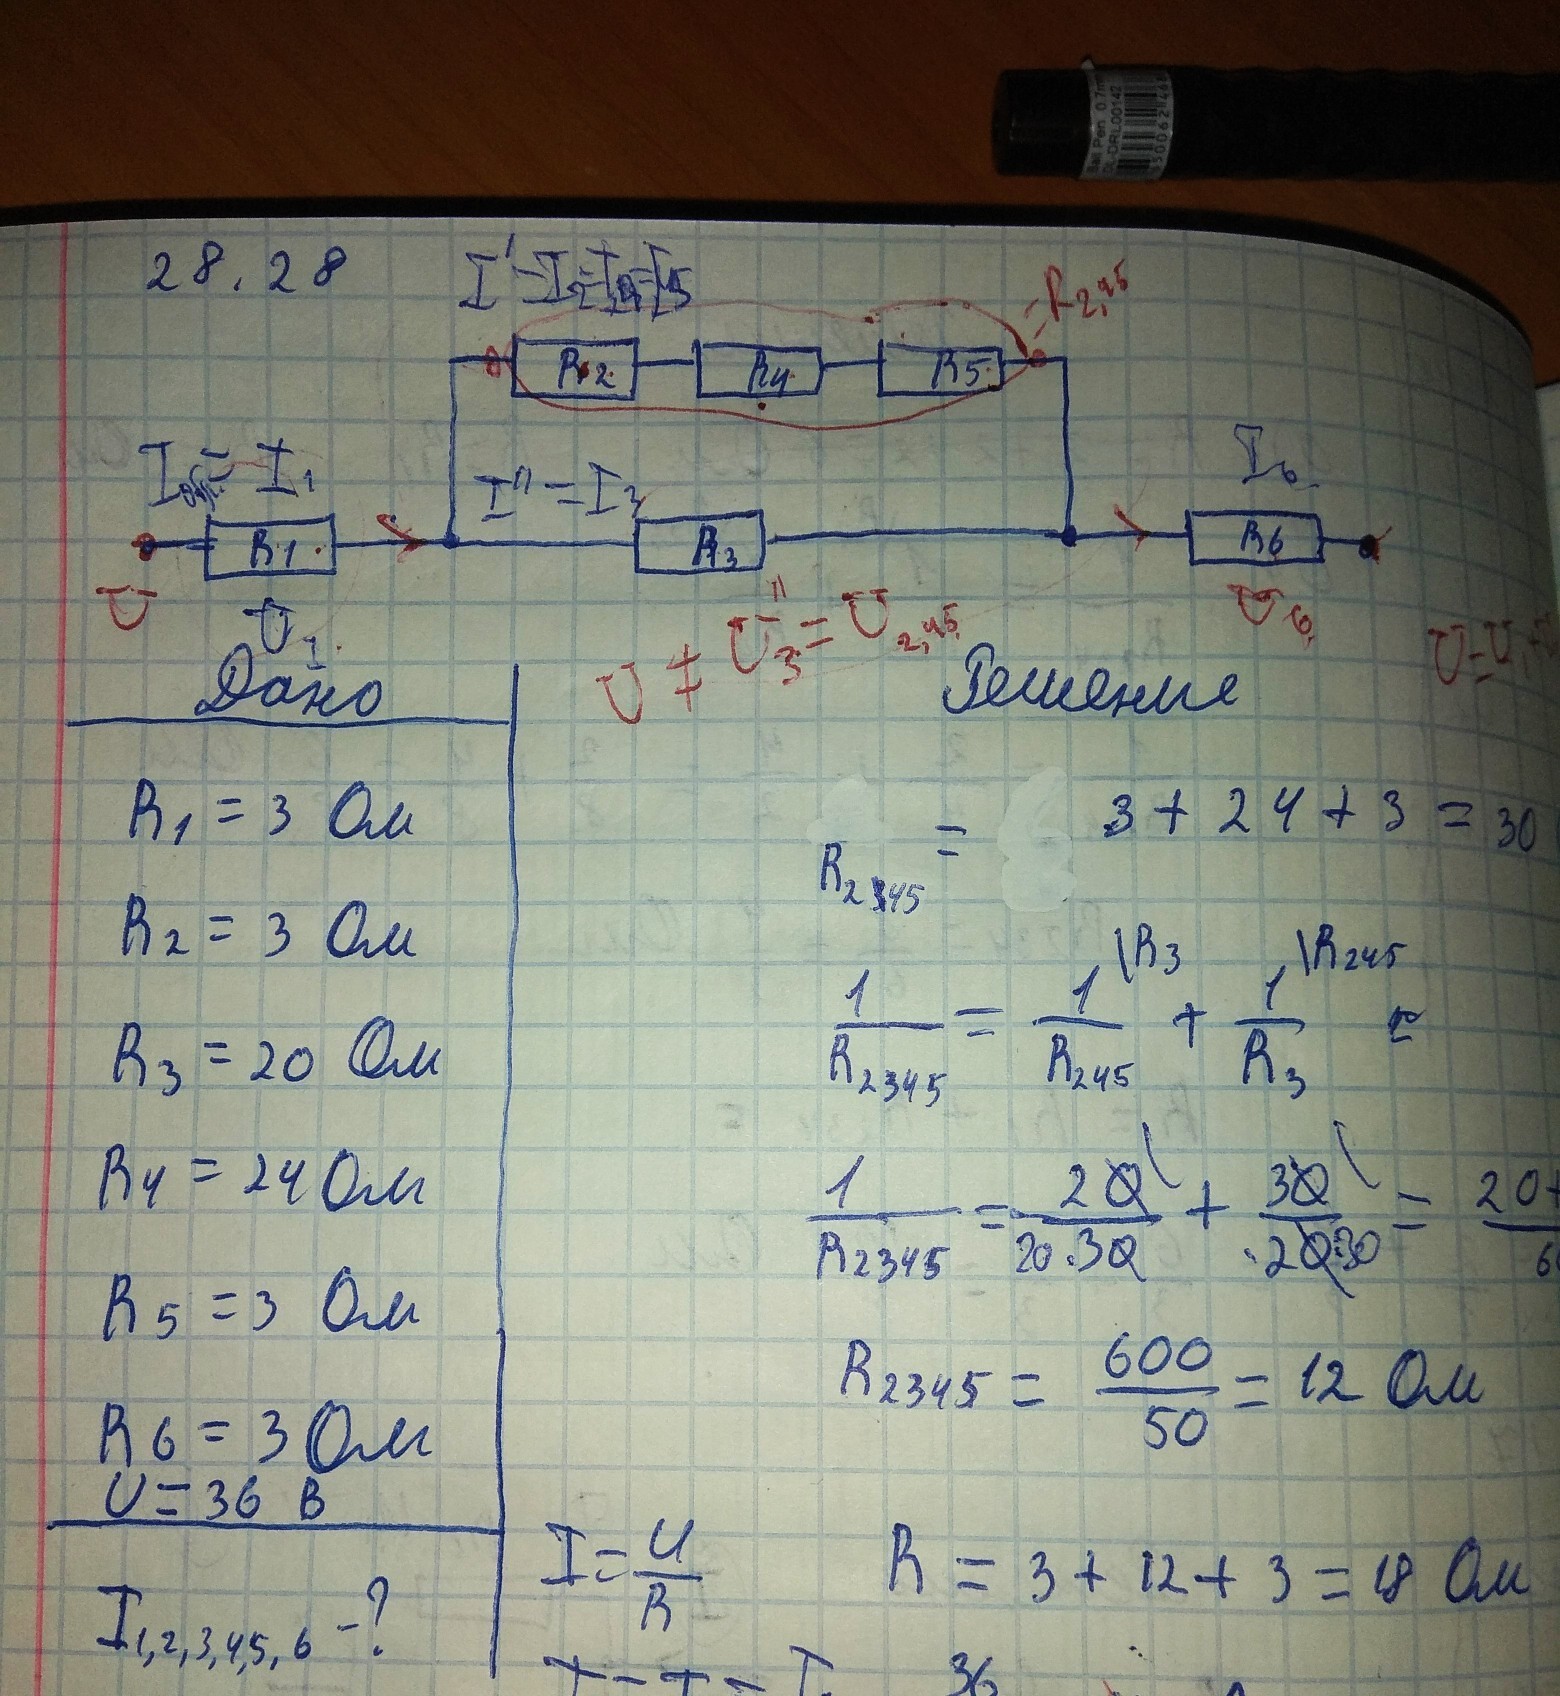 Ball Pen 0.7m
DL-DRL00142
28.28
I' = I2 = I4 = I5
= R2,45
R2 R4 R5
Iобщ = I1
I" = I3
I6
R1
R3
R6
U
U1
U ≠ U"3 = U2,45
U6
Дано
Решение
R1 = 3 Ом
R2 = 3 Ом
R3 = 20 Ом
R4 = 24 Ом
R5 = 3 Ом
R6 = 3 Ом
U = 36 В
I1,2,3,4,5,6 - ?
R245 = 3 + 24 + 3 = 30
1/R2345 = 1/R245 \R3 + 1/R3 \R245 =
1/R2345 = 20/20·30 + 30/20·30 = 20+
R2345 = 600/50 = 12 Ом
I = U/R
R = 3 + 12 + 3 = 18 Ом
36